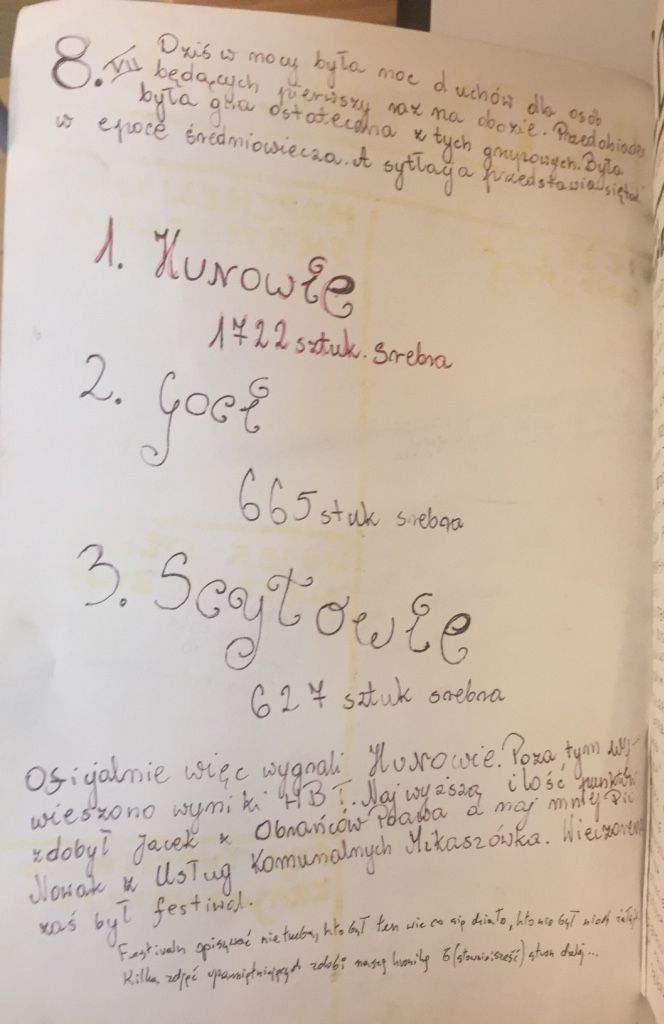 8.VII Dziś w nocy była noc duchów dla osób
będących pierwszy raz na obozie. Przedobiadem
była gra ostateczna z tych grupowych. Była
w epoce średniowiecza. A sytłacja przedstawia się tak
1. Hunowie
1722 sztuk. Srebra
2. Goci
665 stuk srebra
3. Scytowie
627 sztuk srebra
Oficjalnie więc wygrali Hunowie. Poza tym wy-
wieszono wyniki HBT. Najwyższą ilość punktów
zdobył Jacek z Obrońców a naj mniej
Nowak z Usług Komunalnych Mikaszówka. Wieczorem
zaś był festiwal.
Festivalu opisywać nie trzeba, kto był ten wie co się działo, kto nie był niech żałuje
Kilka zdjęć upamiętniających zdobi naszą kronikę 6 (słownie sześć) stron dalej...